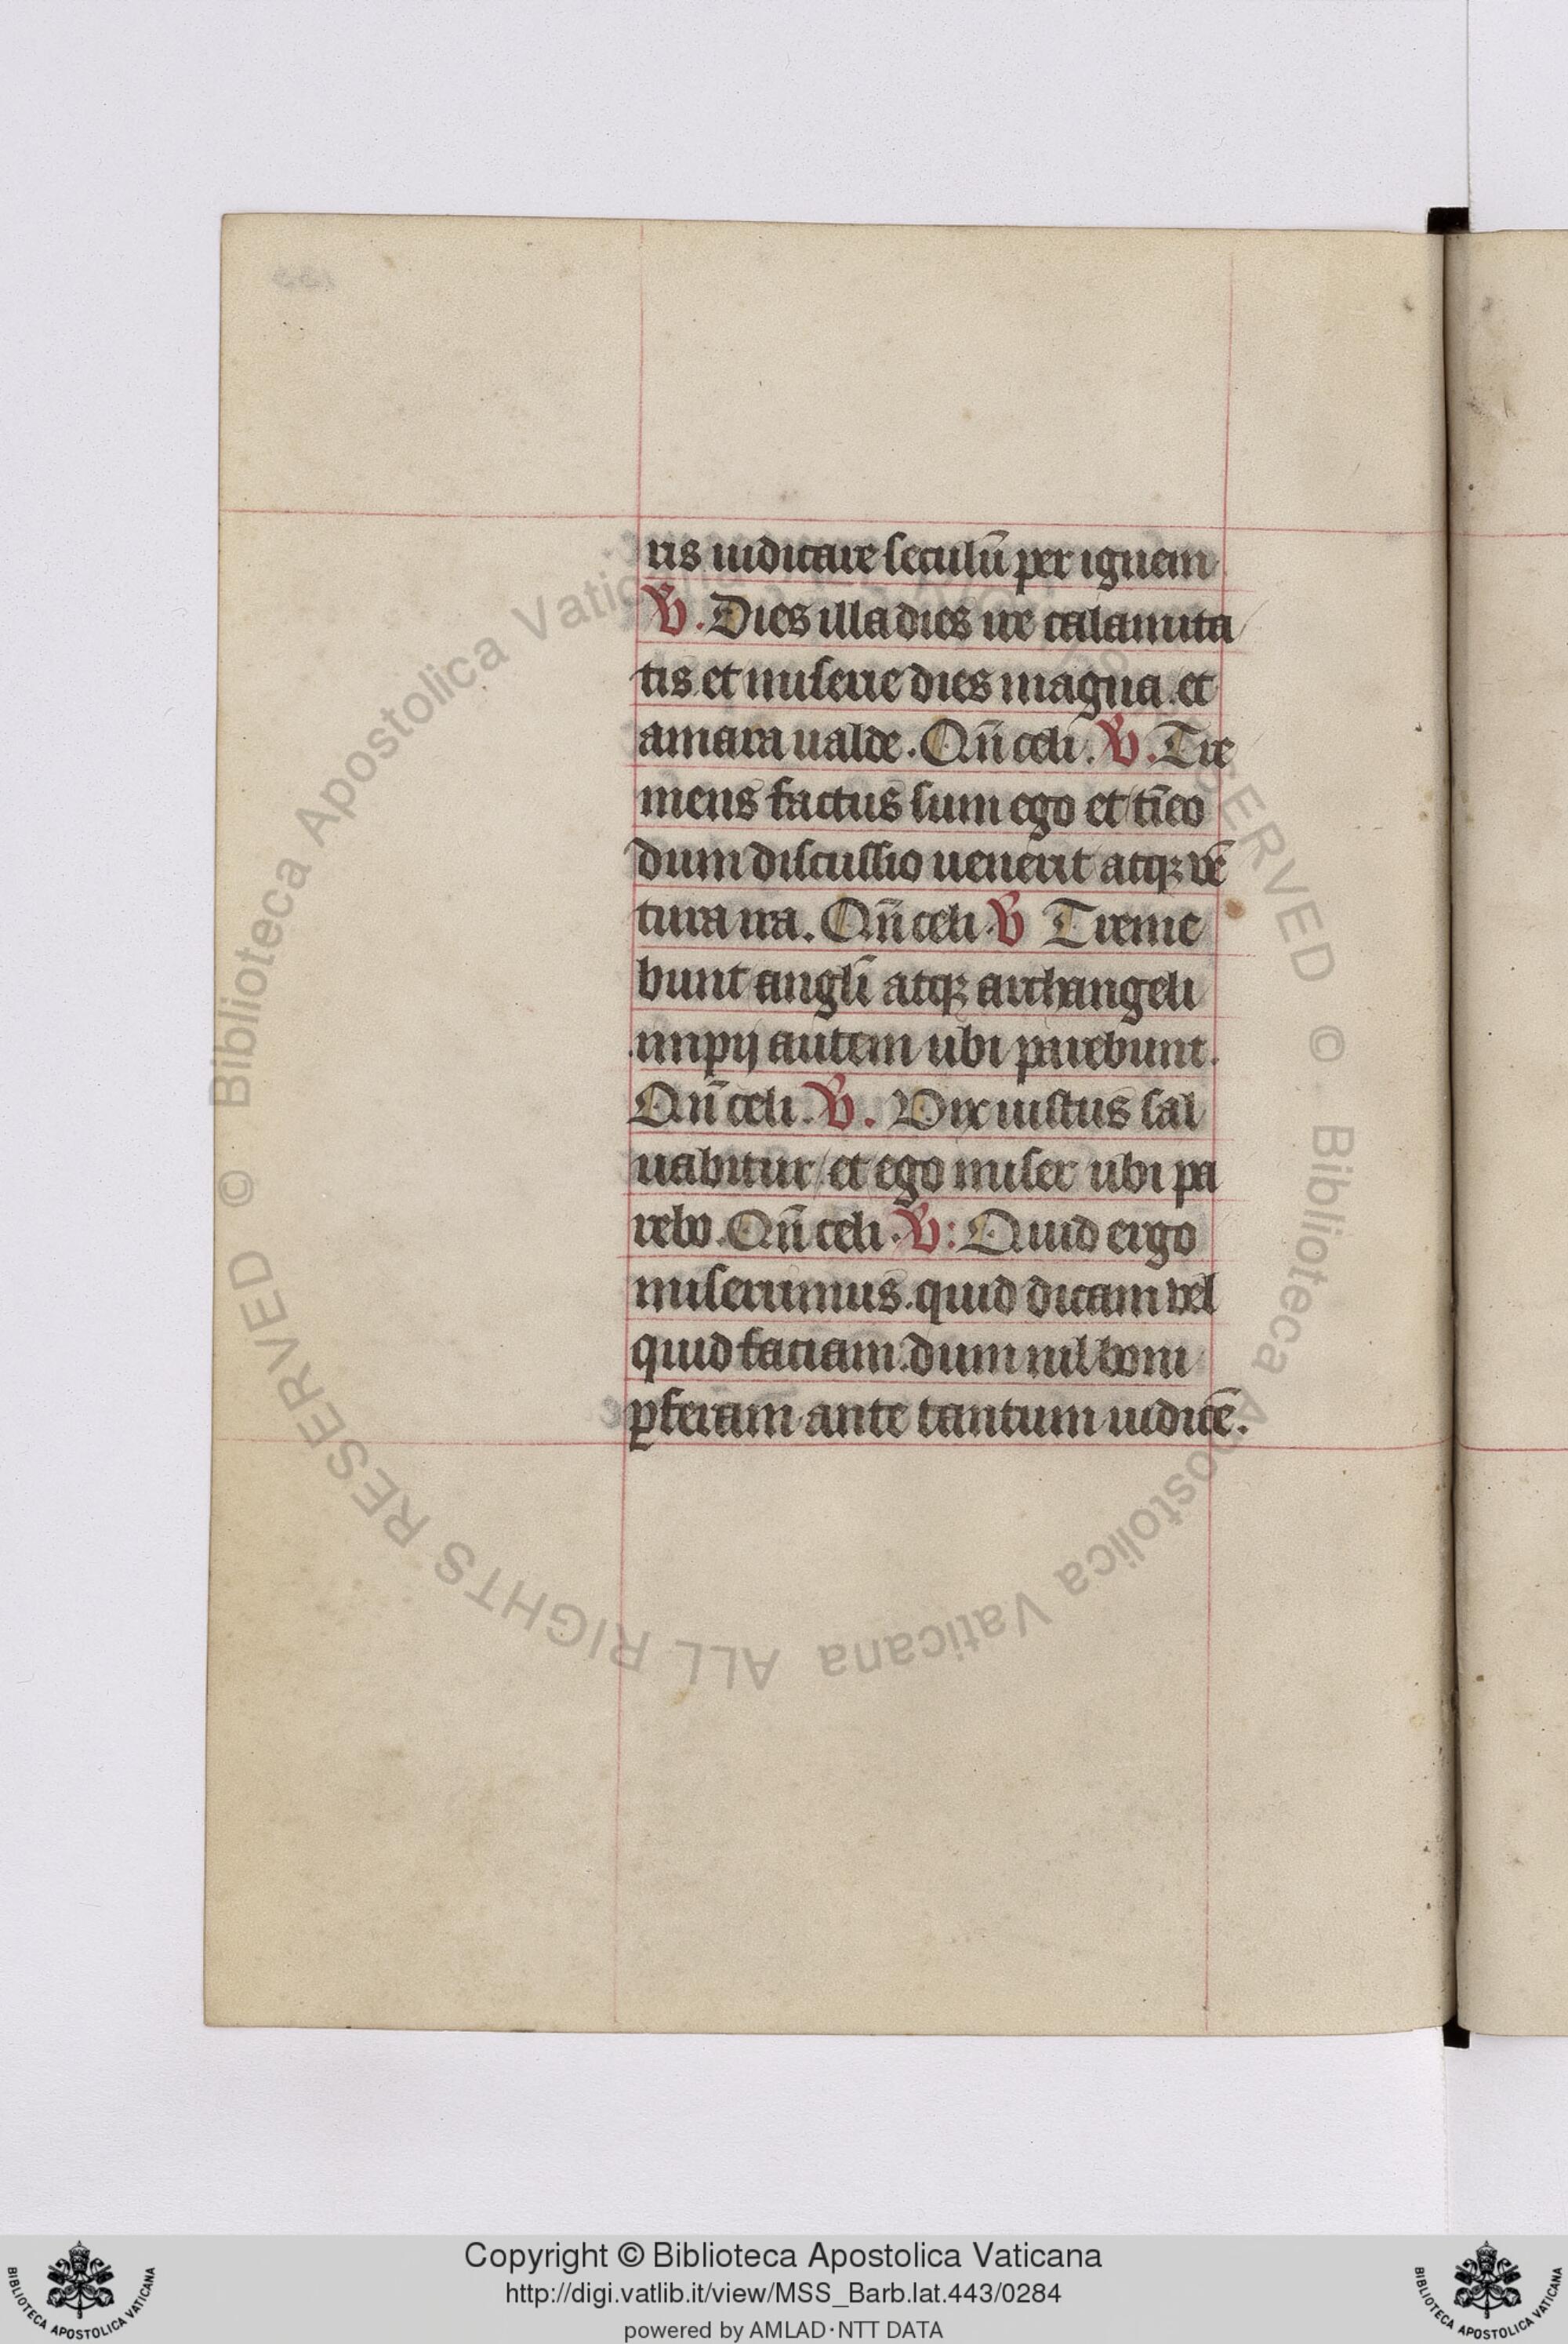 ris iudicare seculū per ignem
℣. Dies illa dies ire calamita
tis et miserie dies magna et
amara ualde. Qn̄ celi. ℣. Tre
mens factus sum ego et tīeo
dum discussio uenerit atqꝫ vē
tura ira. Qn̄ celi ℣ Treme
bunt angl̄i atqꝫ archangeli
impij autem ubi parebunt.
Qn̄ celi. ℣. Vix iustus sal
uabitur / et ego miser ubi pa
rebo. Qn̄ celi. ℣: Quid ergo
miserrimus. quid dicam vel
quid faciam. dum nil boni
ꝑferam ante tantum iudicē.
© Biblioteca Apostolica Vaticana ALL RIGHTS RESERVED
© Biblioteca Apostolica Vaticana ALL RIGHTS RESERVED
Copyright © Biblioteca Apostolica Vaticana
http://digi.vatlib.it/view/MSS_Barb.lat.443/0284
powered by AMLAD·NTT DATA
BIBLIOTECA APOSTOLICA VATICANA
BIBLIOTECA APOSTOLICA VATICANA